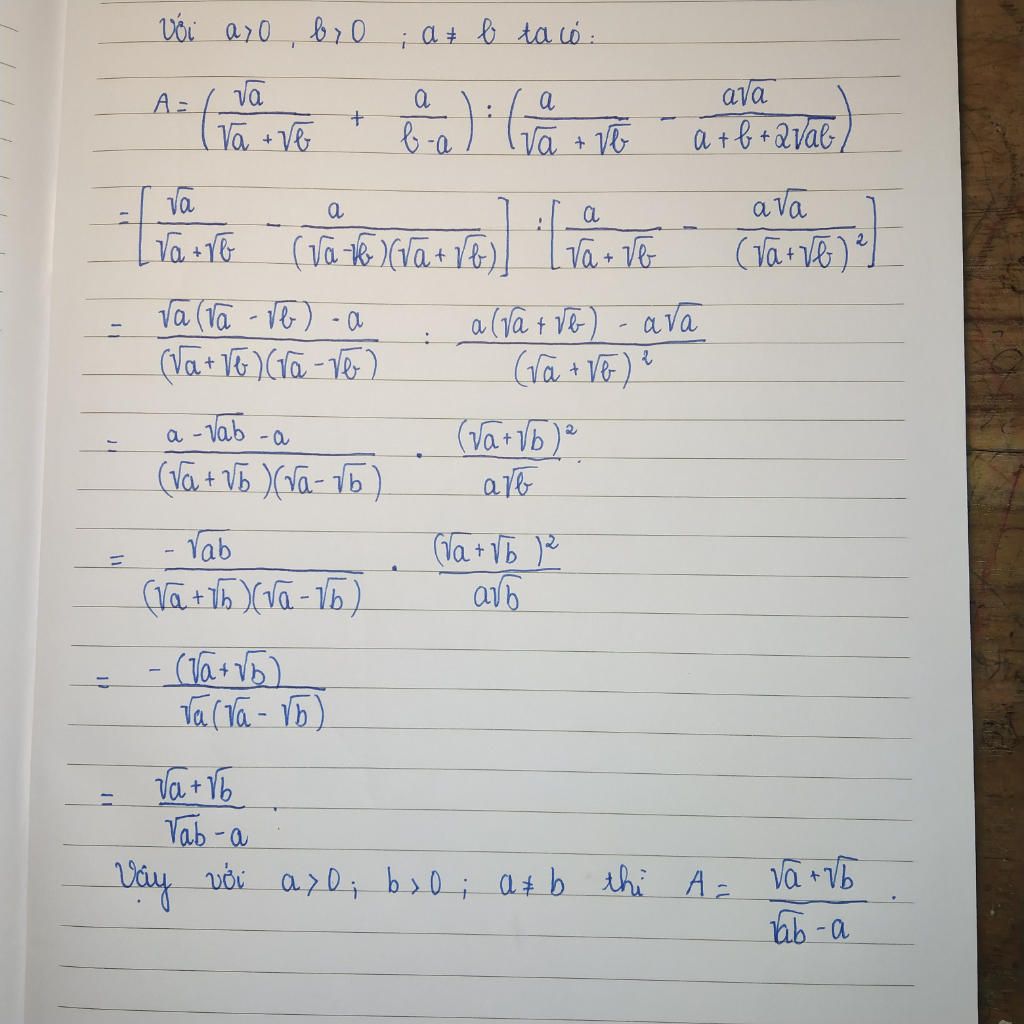 Với a>0, b>0 ; a≠b ta có:
A = (√a/(√a+√b) + a/(b-a)) : (a/(√a+√b) - a√a/(a+b+2√ab))
= [√a/(√a+√b) - a/((√a-√b)(√a+√b))] : [a/(√a+√b) - a√a/(√a+√b)²]
= (√a(√a-√b) - a)/((√a+√b)(√a-√b)) : (a(√a+√b) - a√a)/(√a+√b)²
= (a-√ab-a)/((√a+√b)(√a-√b)) . (√a+√b)²/(a√b).
= -√ab/((√a+√b)(√a-√b)) . (√a+√b)²/(a√b)
= -(√a+√b)/(√a(√a-√b))
= (√a+√b)/(√ab-a).
Vậy với a>0; b>0; a≠b thì A = (√a+√b)/(√ab-a).